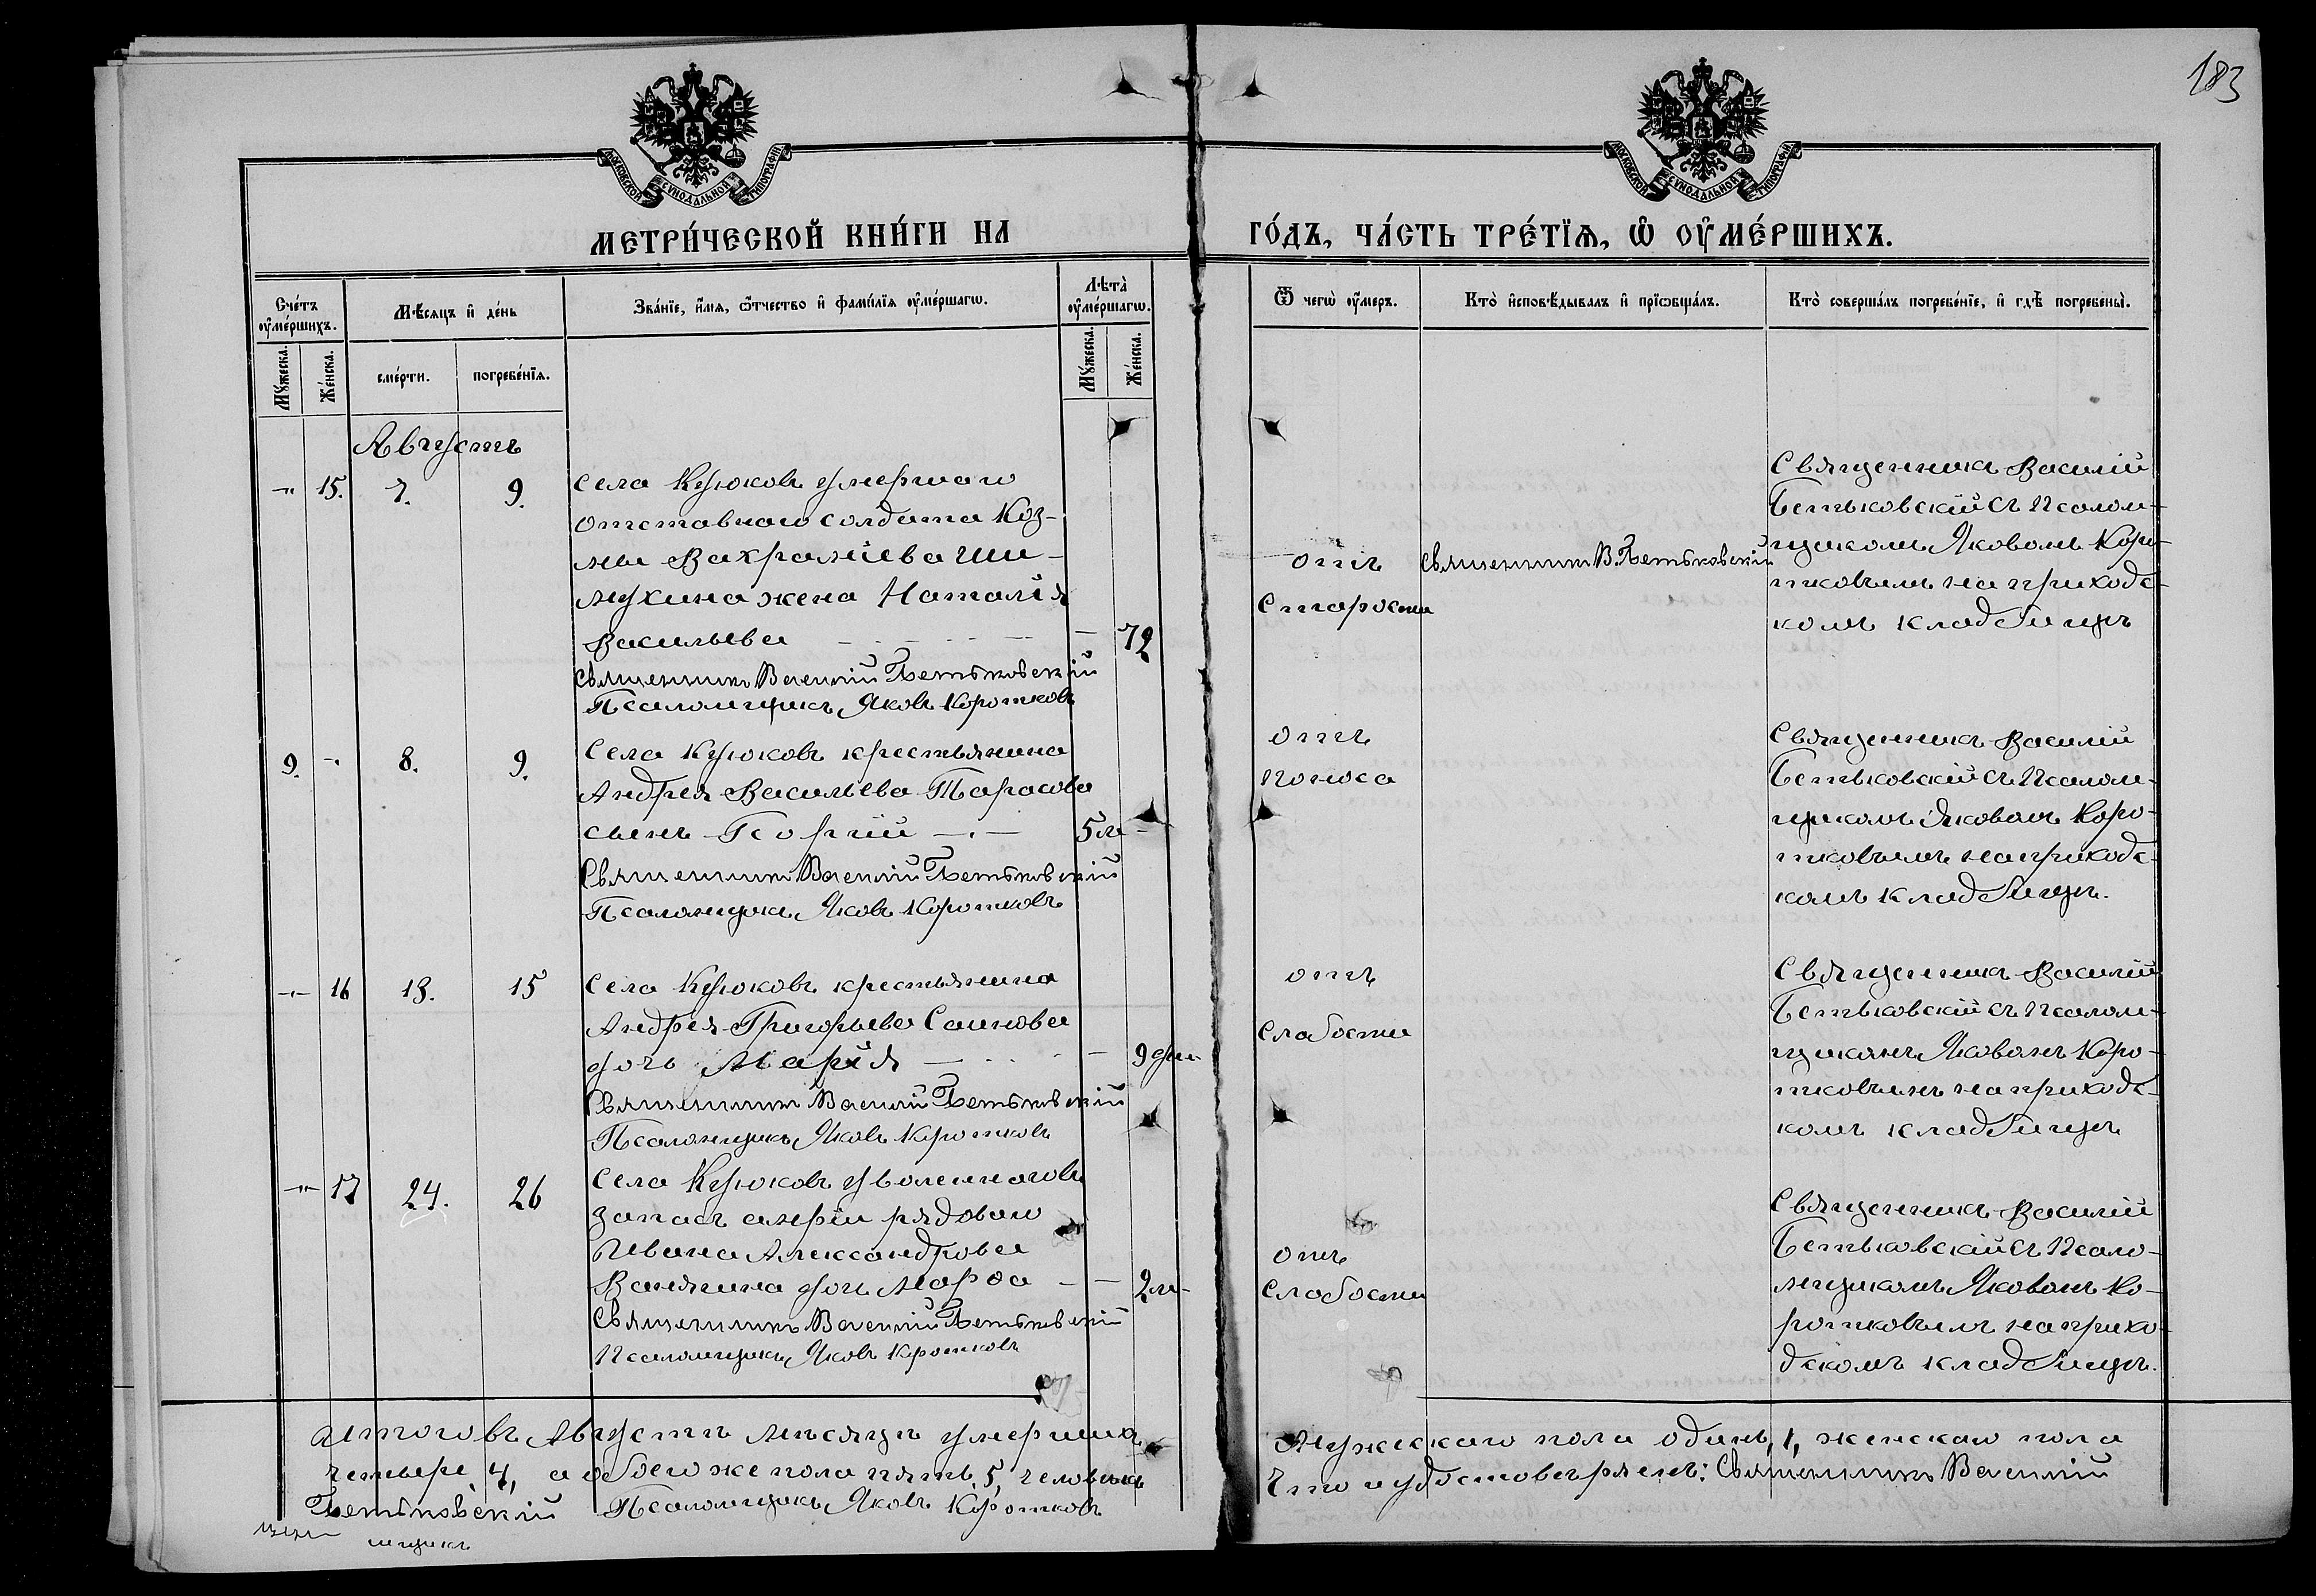 183
МОСКОВСКОЙ СѴНОДАЛЬНОЙ ТИПОГРАФІИ
МОСКОВСКОЙ СѴНОДАЛЬНОЙ ТИПОГРАФІИ
МЕТРИ́ЧЕСКОЙ КНИ́ГИ НА
ГО́ДЪ, ЧА́СТЬ ТРЕ́ТЇѦ, Ѡ҆ ОУ҆МЕ́РШИХЪ.
Сче́тъ оу҆ме́ршихъ.
Мꙋ́жеска.
Же́нска.
Мѣ́сѧцъ и҆ де́нь
сме́рти.
погребе́нїѧ.
Зва́нїе, и҆́мѧ, ѻ҆́тчество и҆ фамі́лїѧ оу҆ме́ршагѡ.
Лѣ̑та̀ оу҆ме́ршагѡ.
Мꙋ́жеска.
Же́нска.
Ѿ чегѡ̀ оу҆́меръ.
Кто̀ и҆сповѣ́дывалъ и҆ прїѡбща́лъ.
Кто̀ соверша́лъ погребе́нїе, и҆ гдѣ̀ погребены̀.
Августъ
-"- 15. 7. 9.
Села Крюковъ умершаго
отставнаго солдата Коз-
мы Вахрамѣева Ши-
мухина жена Наталія
Васильева — 72
Священникъ Василій Бетьковскій
Псаломщикъ Яковъ Коротковъ
отъ
старости
Священникъ В. Бетьковскій
Священникъ Василій
Бетьковскій съ Псалом-
щикомъ Яковомъ Коро-
тковымъ на приходс-
комъ кладбищѣ
9. -"- 8. 9.
Села Крюковъ крестьянина
Андрея Васильева Тарасова
сынъ Георгій — 5 м
Священникъ Василій Бетьковскій
Псаломщикъ Яковъ Коротковъ
отъ
поноса
Священникъ Василій
Бетьковскій съ Псалом-
щикомъ Яковомъ Коро-
тковымъ на приходс-
комъ кладбищѣ.
-"- 16 13. 15
Села Крюковъ крестьянина
Андрея Григорьева
дочь Марія — 9 дн
Священникъ Василій Бетьковскій
Псаломщикъ Яковъ Коротковъ
отъ
слабости
Священникъ Василій
Бетьковскій съ Псалом-
щикомъ Яковомъ Коро-
тковымъ на приходс-
комъ кладбищѣ
-"- 17 24. 26
Села Крюковъ уволеннаго въ
запасъ арміи рядоваго
Ивана Александрова
Ванягина дочь Марѳа — 2 м
Священникъ Василій Бетьковскій
Псаломщикъ Яковъ Коротковъ
отъ
слабости
Священникъ Василій
Бетьковскій съ Псало-
мщикомъ Яковомъ Ко-
ротковымъ на прихо-
дскомъ кладбищѣ.
Итого въ Августѣ мѣсяцѣ умерших мужескаго пола одинъ, 1, женскаго пола
четыре, 4, а обоего же пола пять, 5, человѣкъ Что и удостовѣряемъ: Священникъ Василій
Бетьковскій Псаломщикъ Яковъ Коротковъ